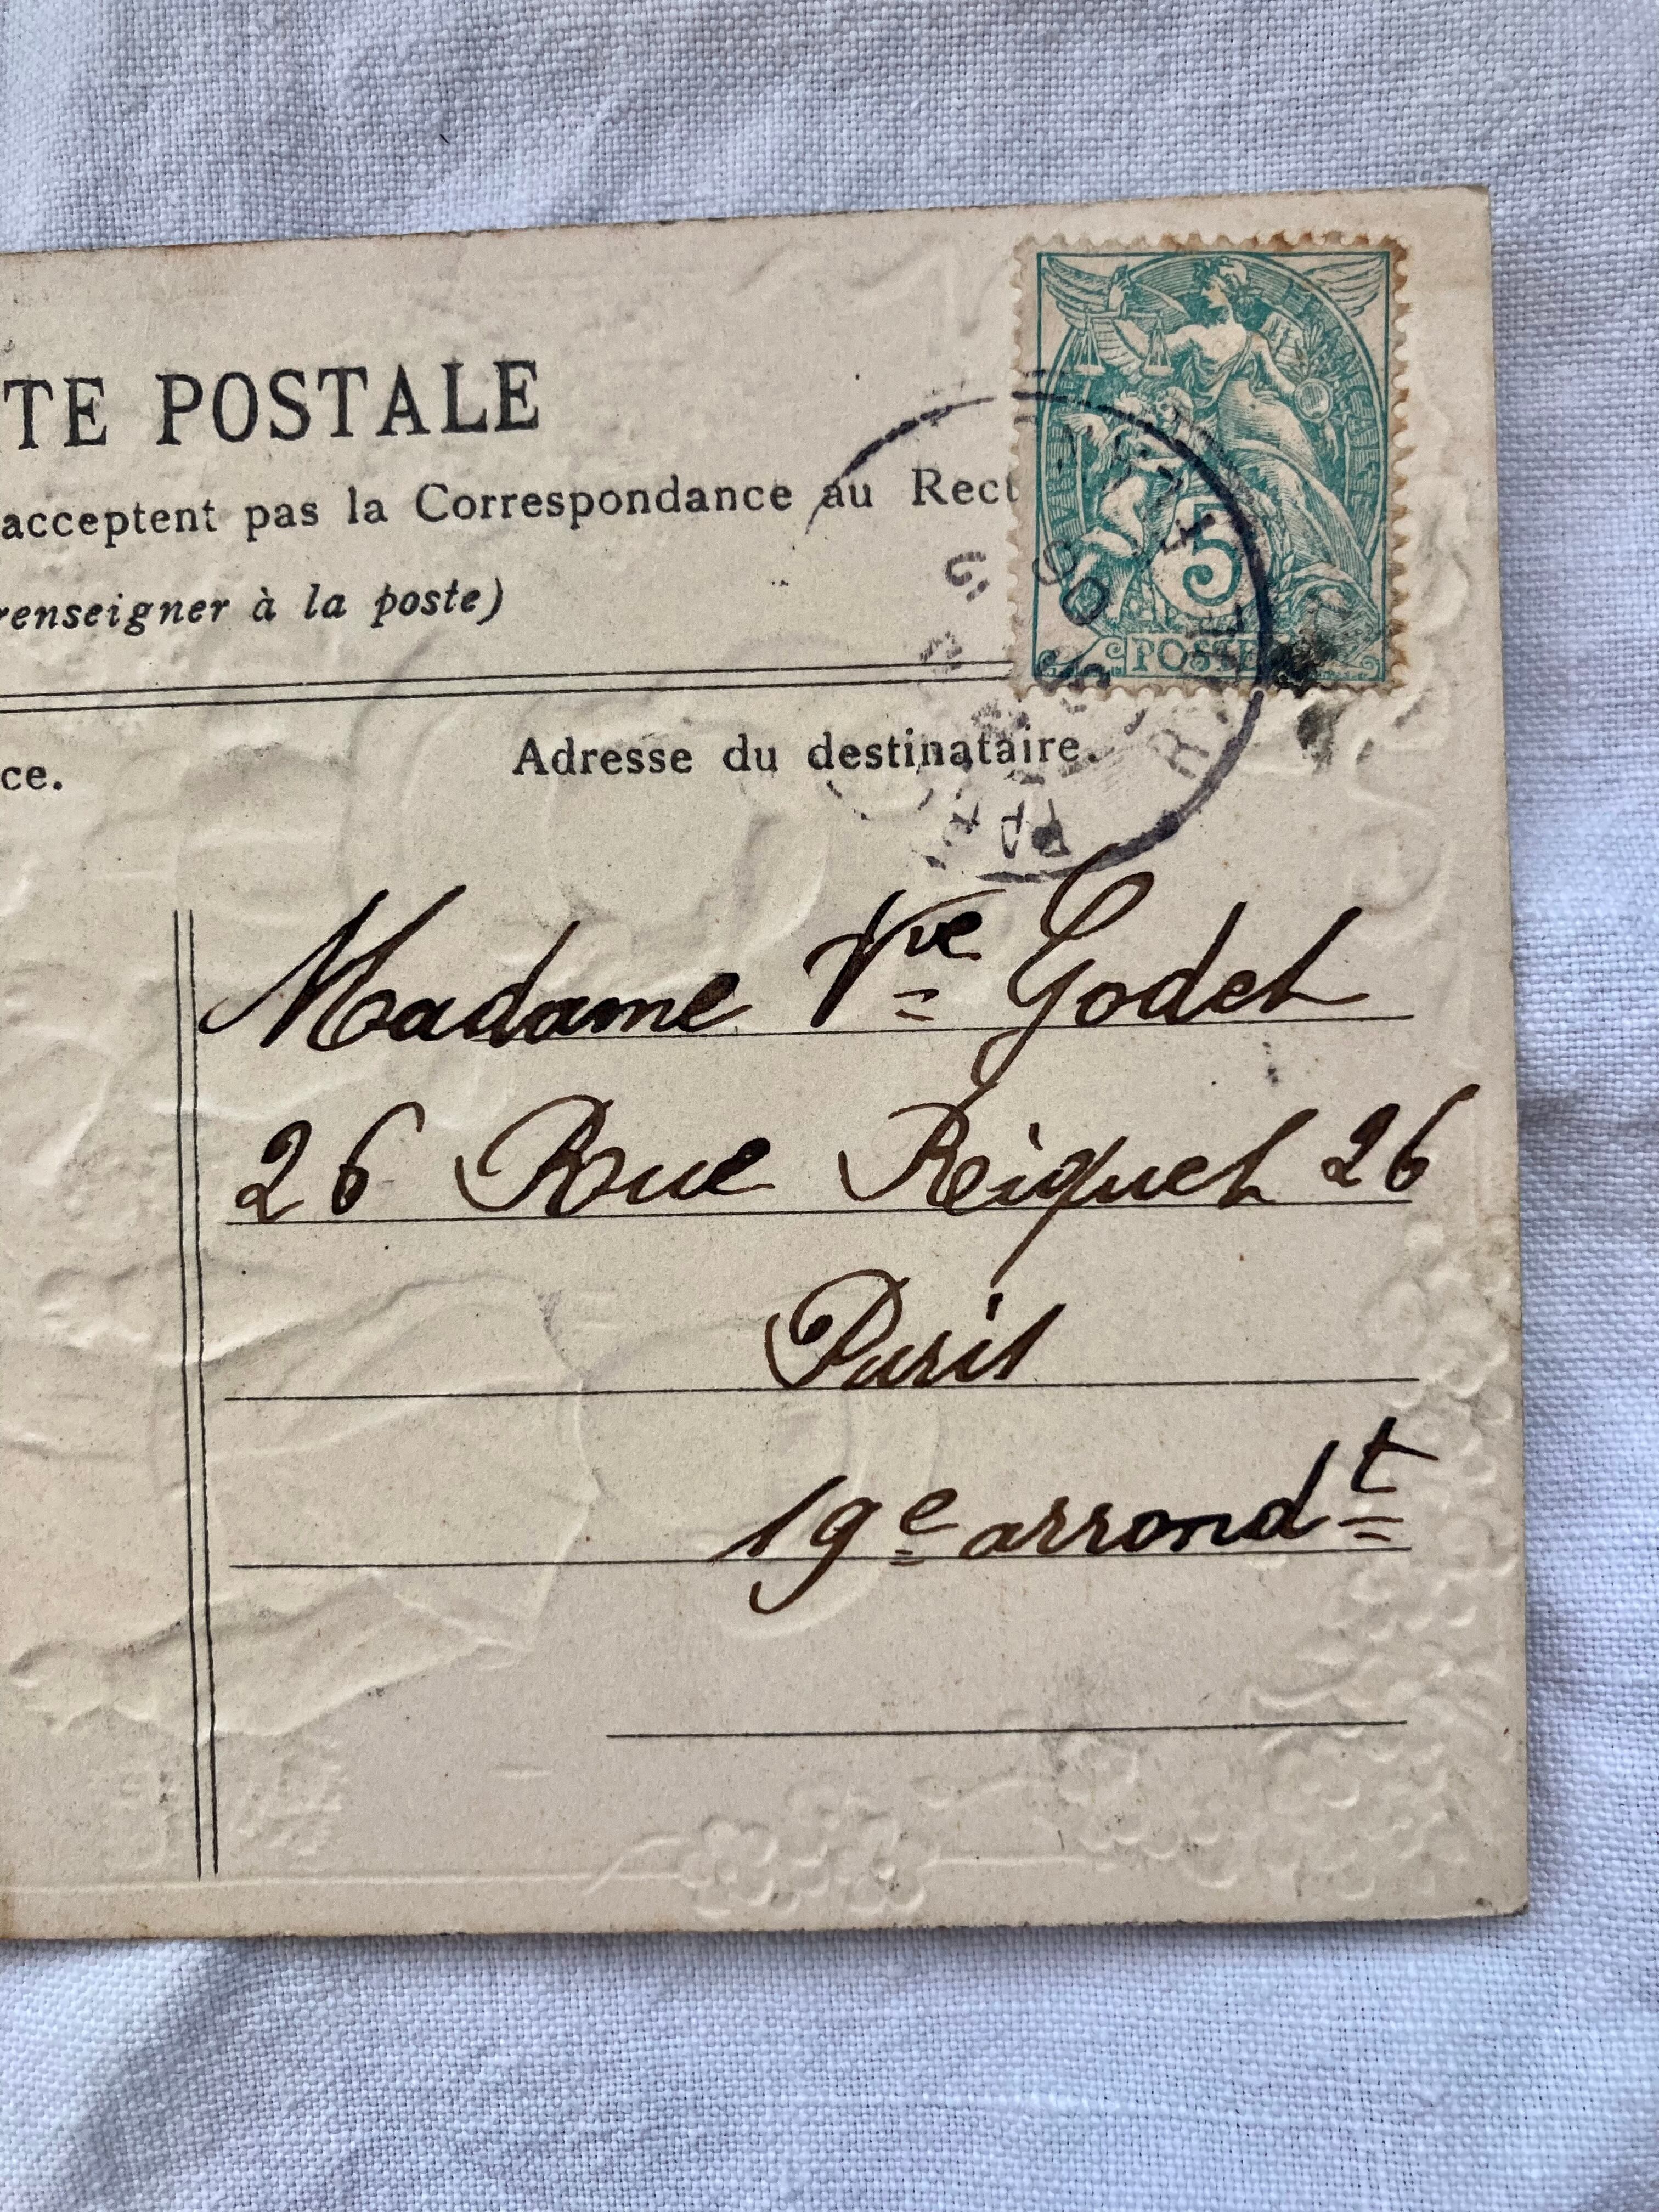 TE POSTALE
acceptent pas la Correspondance au Rect
renseigner à la poste)
5
c POSTE
ce.
Adresse du destinataire.
Madame Vve Godet
26 Rue Riquet 26
Paris
19e arrondt